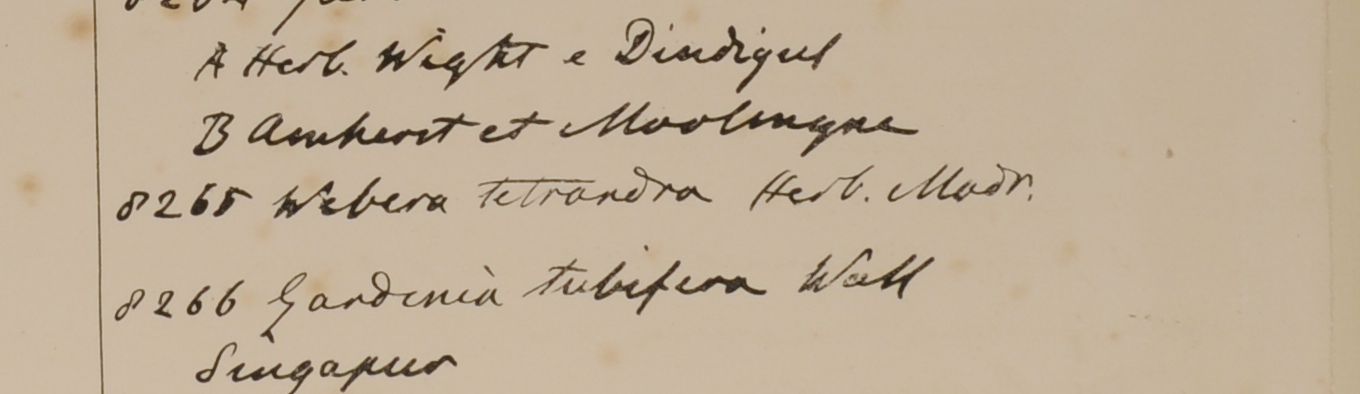 A Herb. Wight e Dindigul
B Amherst et Moolmyne
8265 Webera tetrandra Herb. Madr.
8266 Gardenia tubifera Wall
Singapur